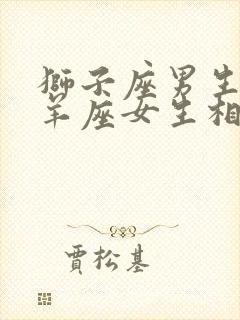 獅子座男生
羊座女生相
賈松基